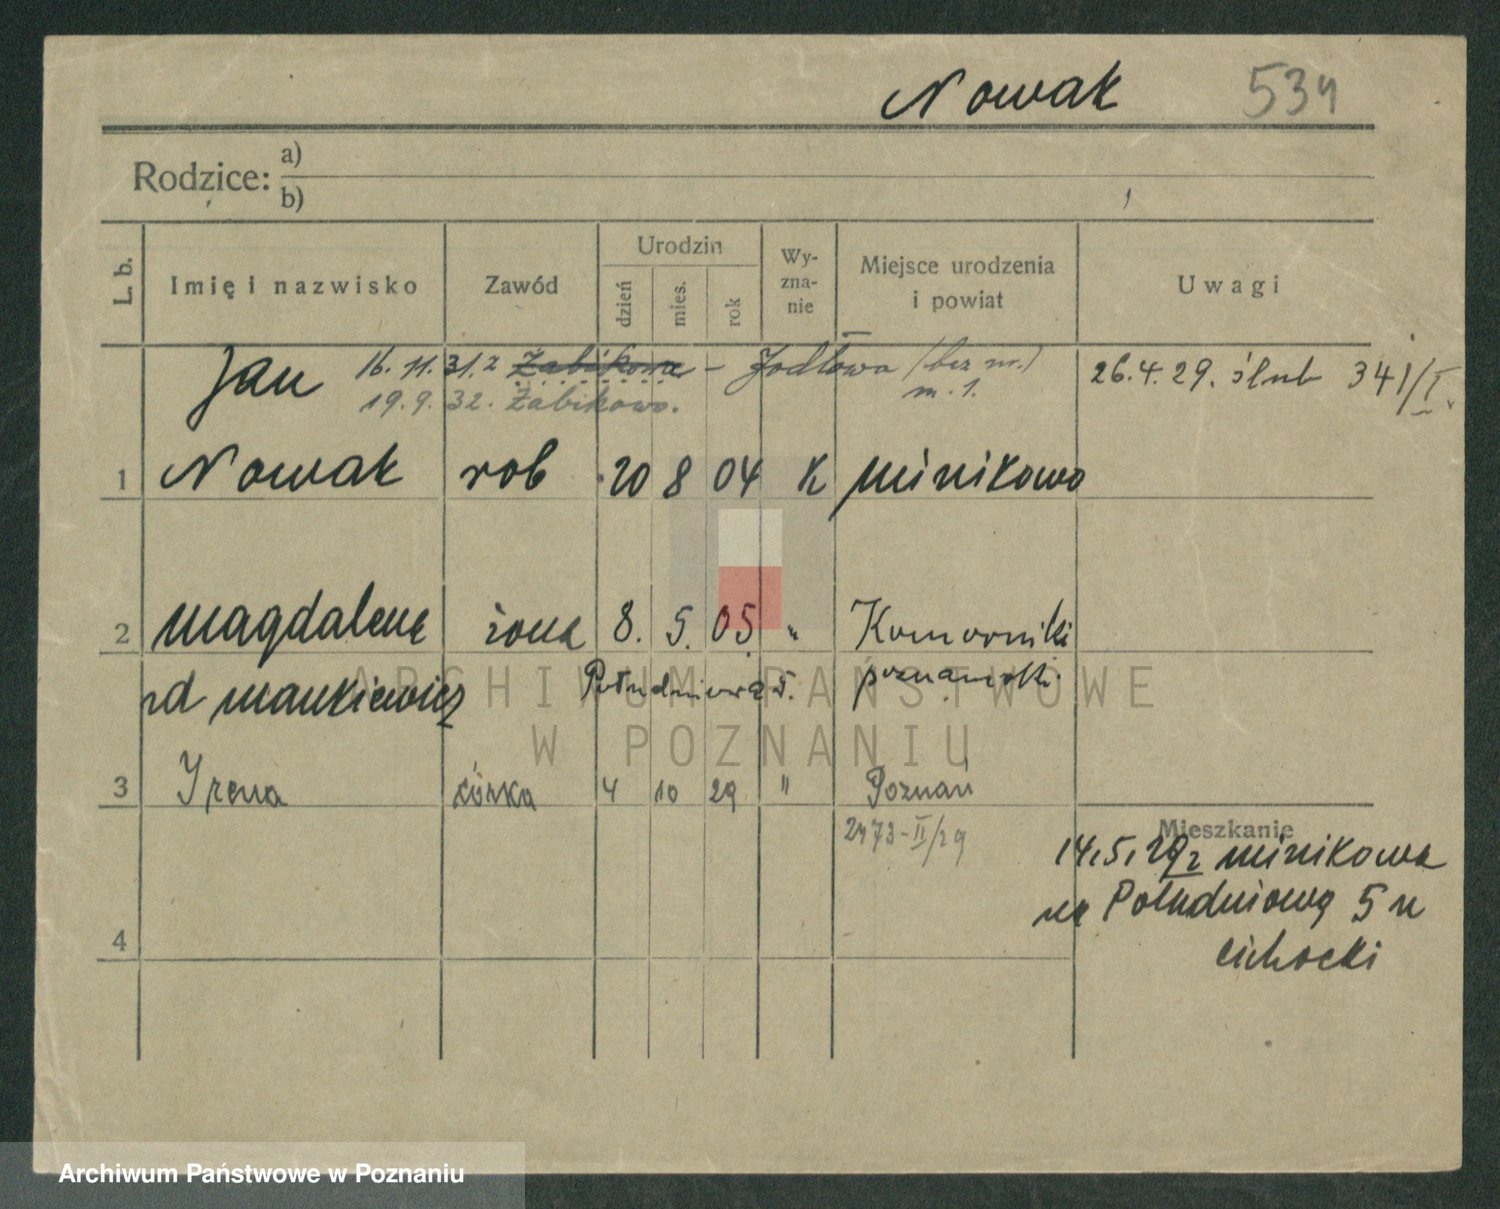 Nowak 534
Rodzice: a)
b)
L. b. Imię i nazwisko Zawód Urodzin dzień mies. rok Wyznanie Miejsce urodzenia i powiat Uwagi
Jan 16.11.31.r Żabikowo – Jodłowa (bez nr.) 26.4.29. ślub 341/I.
19.9.32. Żabikowo. m. 1.
1 Nowak rob 20 8 04 K Minikowo
2 Magdalena żona 8. 5. 05. " Komorniki
rd Mankiewicz Południowa 5. poznański.
3 Irena córka 4 10 29 " Poznań
2473-II/29
Mieszkanie
14.5.29 z Minikowa
na Południową 5 u
Cichocki
4
ARCHIWUM PAŃSTWOWE
W POZNANIU
Archiwum Państwowe w Poznaniu